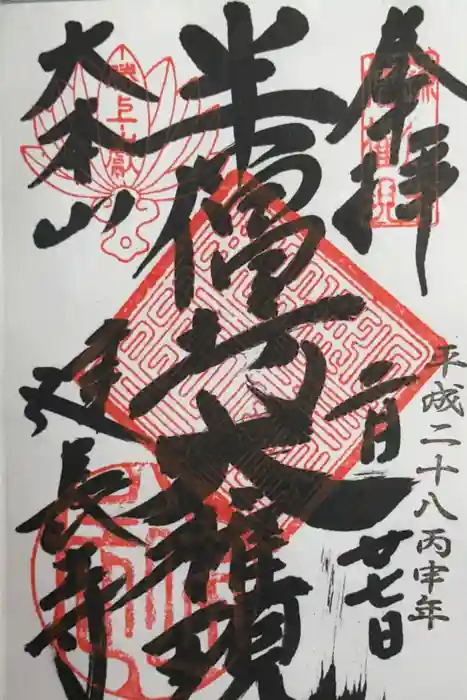 奉拝
平成二十八丙申年
二月廿七日
半僧坊大權現
大本山
建長寺